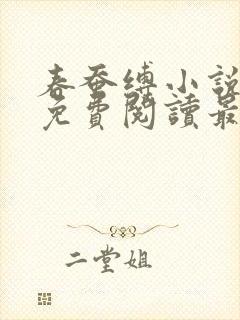 春蚕缚小說
免費閱讀最
二堂姐